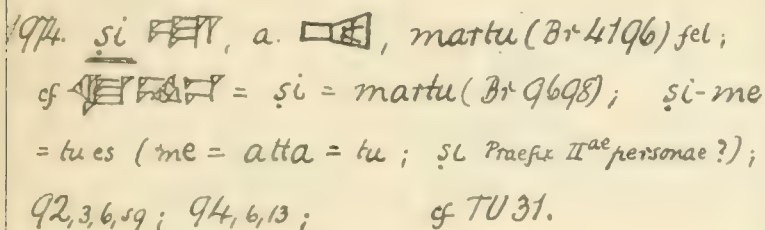 1974. ṣi, a., martu (Br 4196) fel;
cf = ṣi = martu (Br 9698); ṣi-me
= tu es (me = atta = tu; ṣi Praefix IIae personae?);
92,3,6,sq; 94,6,13; cf TU 31.